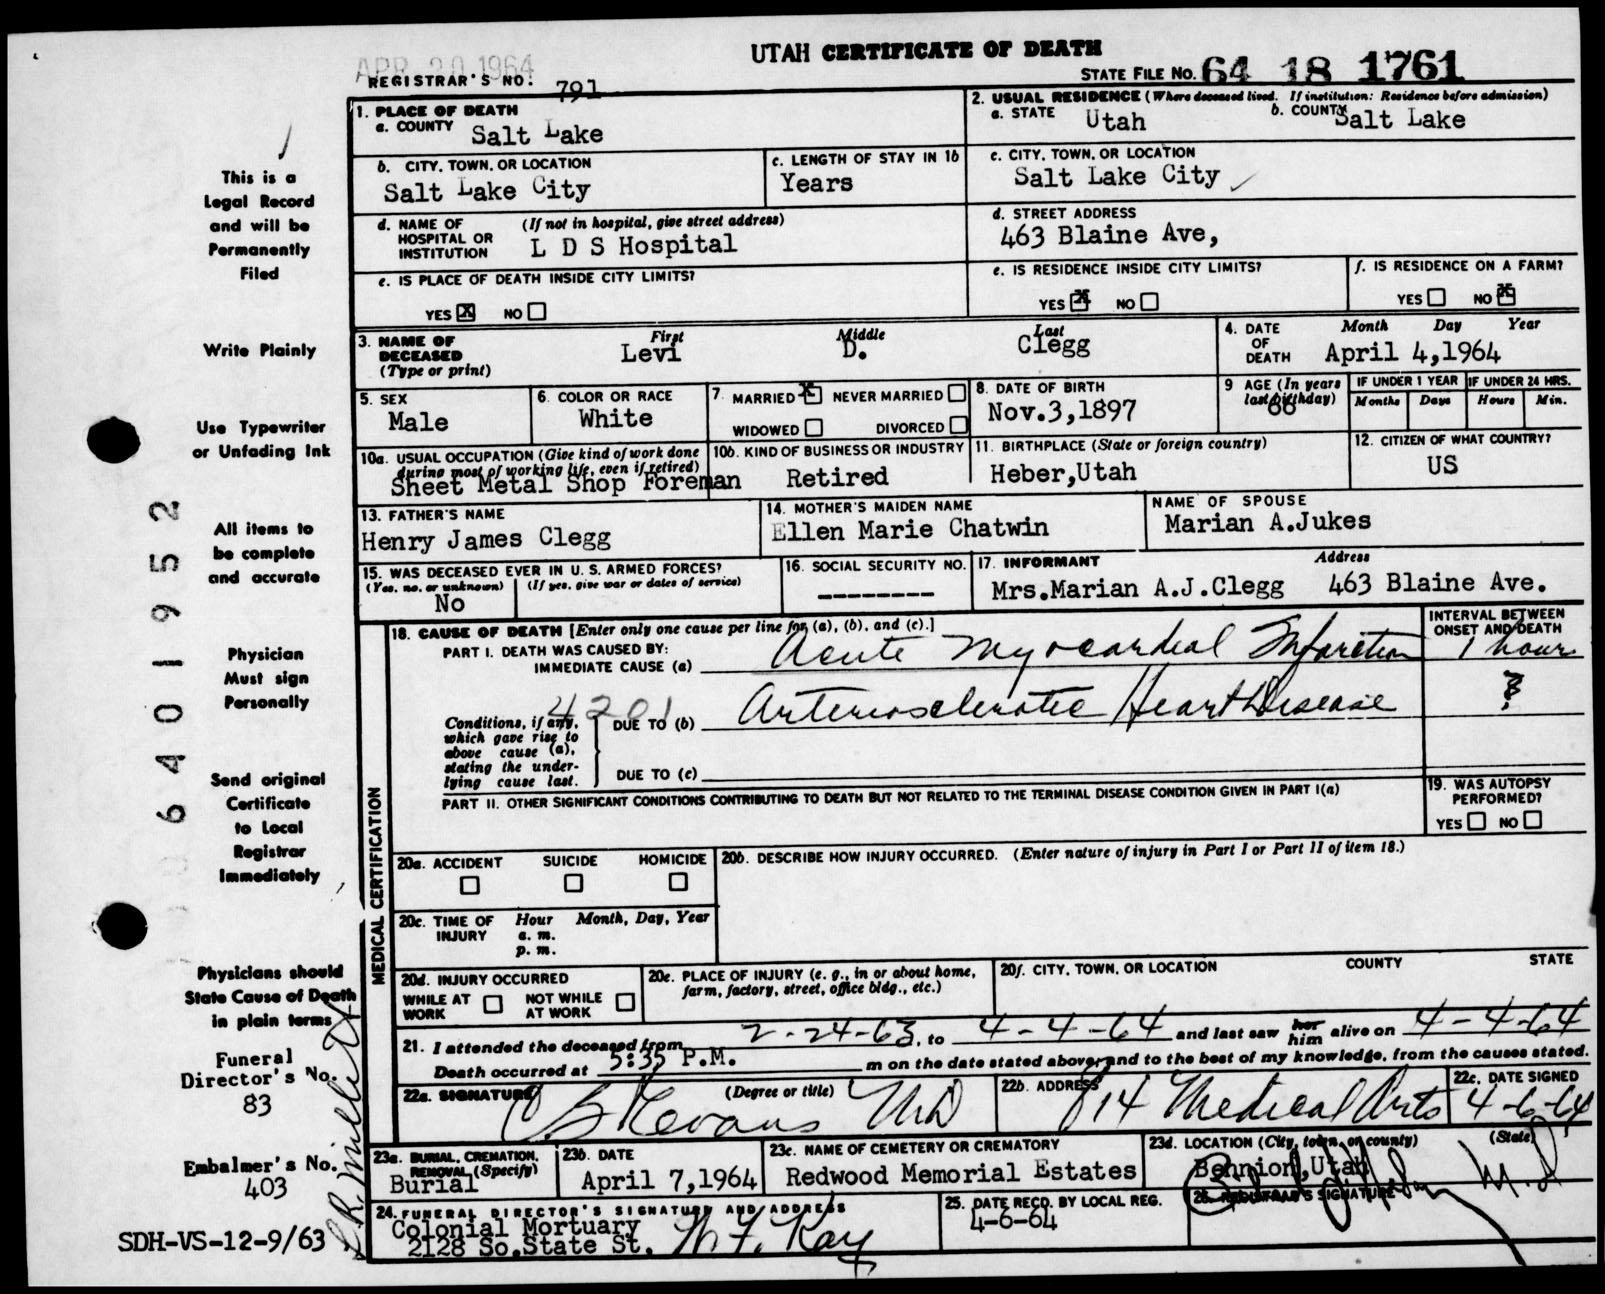 UTAH CERTIFICATE OF DEATH
APR 20 1964
REGISTRAR'S NO. 791
STATE FILE NO. 64 18 1761
1. PLACE OF DEATH
a. COUNTY Salt Lake
2. USUAL RESIDENCE (Where deceased lived. If institution: Residence before admission)
a. STATE Utah b. COUNTY Salt Lake
b. CITY, TOWN, OR LOCATION
Salt Lake City
c. LENGTH OF STAY IN 1b
Years
c. CITY, TOWN, OR LOCATION
Salt Lake City
d. NAME OF HOSPITAL OR INSTITUTION (If not in hospital, give street address)
L D S Hospital
d. STREET ADDRESS
463 Blaine Ave,
e. IS PLACE OF DEATH INSIDE CITY LIMITS?
YES X NO
e. IS RESIDENCE INSIDE CITY LIMITS?
YES X NO
f. IS RESIDENCE ON A FARM?
YES NO X
3. NAME OF DECEASED (Type or print)
First Middle Last
Levi D. Clegg
4. DATE OF DEATH Month Day Year
April 4,1964
5. SEX
Male
6. COLOR OR RACE
White
7. MARRIED X NEVER MARRIED
WIDOWED DIVORCED
8. DATE OF BIRTH
Nov.3,1897
9 AGE (In years last birthday)
66
IF UNDER 1 YEAR
Months Days
IF UNDER 24 HRS.
Hours Min.
10a. USUAL OCCUPATION (Give kind of work done during most of working life, even if retired)
Sheet Metal Shop Foreman
10b. KIND OF BUSINESS OR INDUSTRY
Retired
11. BIRTHPLACE (State or foreign country)
Heber,Utah
12. CITIZEN OF WHAT COUNTRY?
US
13. FATHER'S NAME
Henry James Clegg
14. MOTHER'S MAIDEN NAME
Ellen Marie Chatwin
NAME OF SPOUSE
Marian A.Jukes
15. WAS DECEASED EVER IN U. S. ARMED FORCES?
(Yes, no, or unknown) (If yes, give war or dates of service)
No
16. SOCIAL SECURITY NO.
--------
17. INFORMANT Address
Mrs.Marian A.J.Clegg 463 Blaine Ave.
18. CAUSE OF DEATH [Enter only one cause per line for (a), (b), and (c).]
INTERVAL BETWEEN ONSET AND DEATH
PART I. DEATH WAS CAUSED BY:
IMMEDIATE CAUSE (a) Acute Myocardial Infarction 1 hour
4201
Conditions, if any, which gave rise to above cause (a), stating the underlying cause last.
DUE TO (b) Arteriosclerotic Heart Disease ?
DUE TO (c)
PART II. OTHER SIGNIFICANT CONDITIONS CONTRIBUTING TO DEATH BUT NOT RELATED TO THE TERMINAL DISEASE CONDITION GIVEN IN PART I(a)
19. WAS AUTOPSY PERFORMED?
YES NO
20a. ACCIDENT SUICIDE HOMICIDE
20b. DESCRIBE HOW INJURY OCCURRED. (Enter nature of injury in Part I or Part II of item 18.)
20c. TIME OF INJURY Hour Month, Day, Year
a. m.
p. m.
20d. INJURY OCCURRED
WHILE AT WORK NOT WHILE AT WORK
20e. PLACE OF INJURY (e. g., in or about home, farm, factory, street, office bldg., etc.)
20f. CITY, TOWN, OR LOCATION COUNTY STATE
21. I attended the deceased from 2-24-63, to 4-4-64 and last saw her him alive on 4-4-64
Death occurred at 5:35 P.M. m on the date stated above, and to the best of my knowledge, from the causes stated.
22a. SIGNATURE (Degree or title)
MD
22b. ADDRESS
814 Medical Arts
22c. DATE SIGNED
4-6-64
23a. BURIAL, CREMATION, REMOVAL (Specify)
Burial
23b. DATE
April 7,1964
23c. NAME OF CEMETERY OR CREMATORY
Redwood Memorial Estates
23d. LOCATION (City, town, or county) (State)
Bennion,Utah
24. FUNERAL DIRECTOR'S SIGNATURE AND ADDRESS
Colonial Mortuary
2128 So.State St. W. F. Kay
25. DATE RECD. BY LOCAL REG.
4-6-64
26. REGISTRAR'S SIGNATURE
M.D
MEDICAL CERTIFICATION
This is a
Legal Record
and will be
Permanently
Filed
Write Plainly
Use Typewriter
or Unfading Ink
All items to
be complete
and accurate
Physician
Must sign
Personally
Send original
Certificate
to Local
Registrar
Immediately
Physicians should
State Cause of Death
in plain terms
Funeral
Director's No.
83
Embalmer's No.
403
SDH-VS-12-9/63
6401952